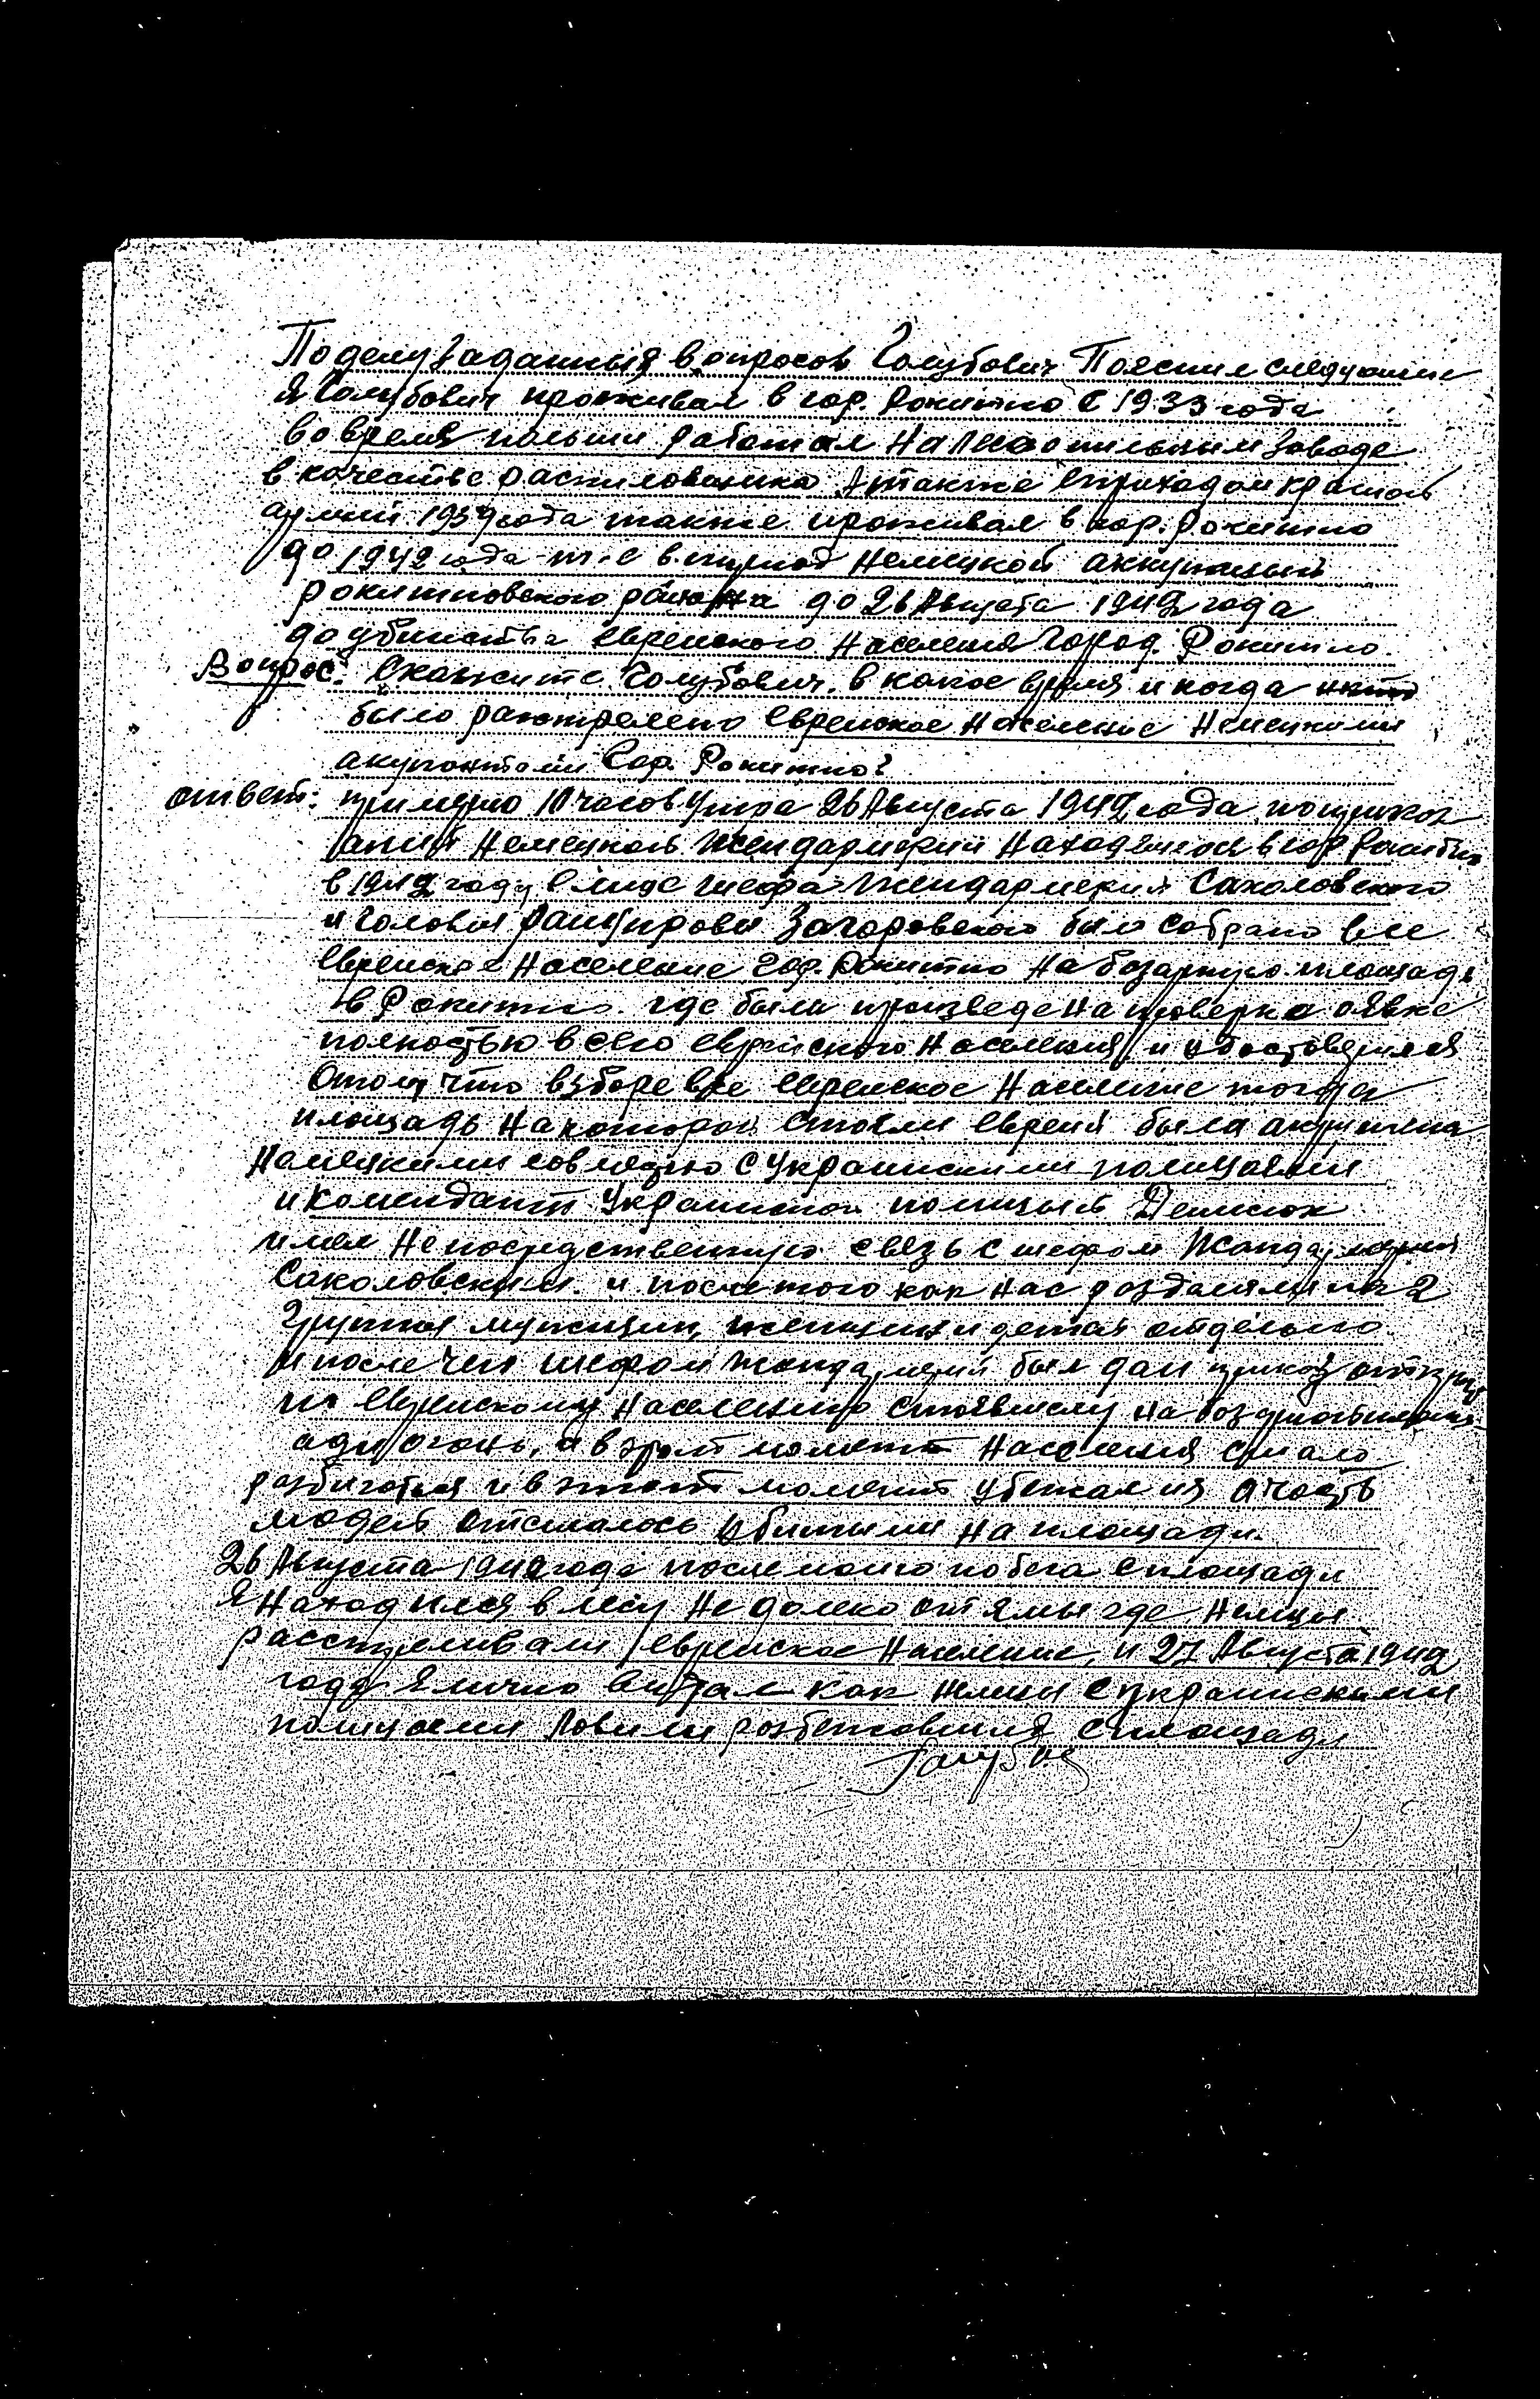 По делу заданныя вопросов Голубович Пояснил следующие
Я Голубович проживал в гор. Рокитно с 1933 года
вовремя польши работал на лесопильным заводе
в качестве распиловщика Атакже сприходом красной
армии 1939 года также проживал в гор. Рокитно
до 1942 года т.е в период немецкой аккупации
рокитновского района до 26 Августа 1942 года
до убииства евреиского населения город. Рокитно.
Вопрос: Скажите Голубович. в какое время и когда
было расстрелено евреиское население немецкими
акупантами Гор. Рокитно?
ответ: примерно 10 часов утра 26 Августа 1942 года, по
немецкой жендармерии находящися в гор Рокитно
в 1942 году в лице шефа жендармерии Саколовского
и головы Загоровского было собрано все
евреиское население гор. Рокитно на базарную площадь
в Рокитно. где была произведена проверка оявке
полностью всего евреиского населения, и
Отом что взборе все евреиское население тогда
площадь на которой стояли евреи была
немецкими совместно с украинскими полицаями
и комендант Украинской полиции Денисюк
имел непосредственную связь с шефом жандармерии
Саколовским. и после того как нас раздалили на 2
группы мужщин, женщин и детей отдельно
и после чего шефом жандармерии был дан приказ открыть
по евреискому населению стоявшему на
ади огонь, а в этот момент населения стало
разбигатся и в этот момент убежал из а часть
людей отсталось убитыми на площади.
26 Августа 1942 года после моего побега с площади
Я находился в лесу не далеко от ямы где немцы
расстреливали евреиское население, и 27 Августа 1942
года Я лично видал как немцы с украинскими
полицаями ловили разбежавшися с площади